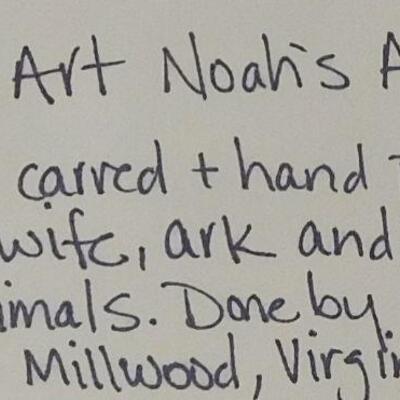 Art Noah's A
carved + hand
wife, ark and
imals. Done by
Millwood, Virgin